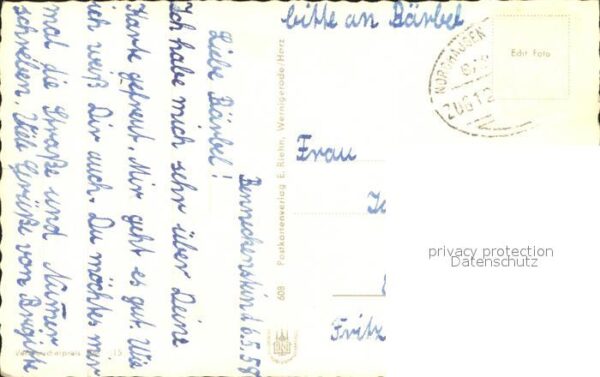 bitte an Bärbel
Benneckenstein d 6.5.58
Liebe Bärbel!
Ich habe mich sehr über Deine
Karte gefreut. Mir geht es gut. Wie
ich weiß Dir auch. Du möchtes mir
mal die Straße und Numer
schreiben. Viele Grüße von Brigitte
Postkartenverlag E. Riehn, Wernigerode/Harz
608
15
NORDHAUSEN
ZUG 12
Echt Foto
Frau
Fritz
privacy protection
Datenschutz